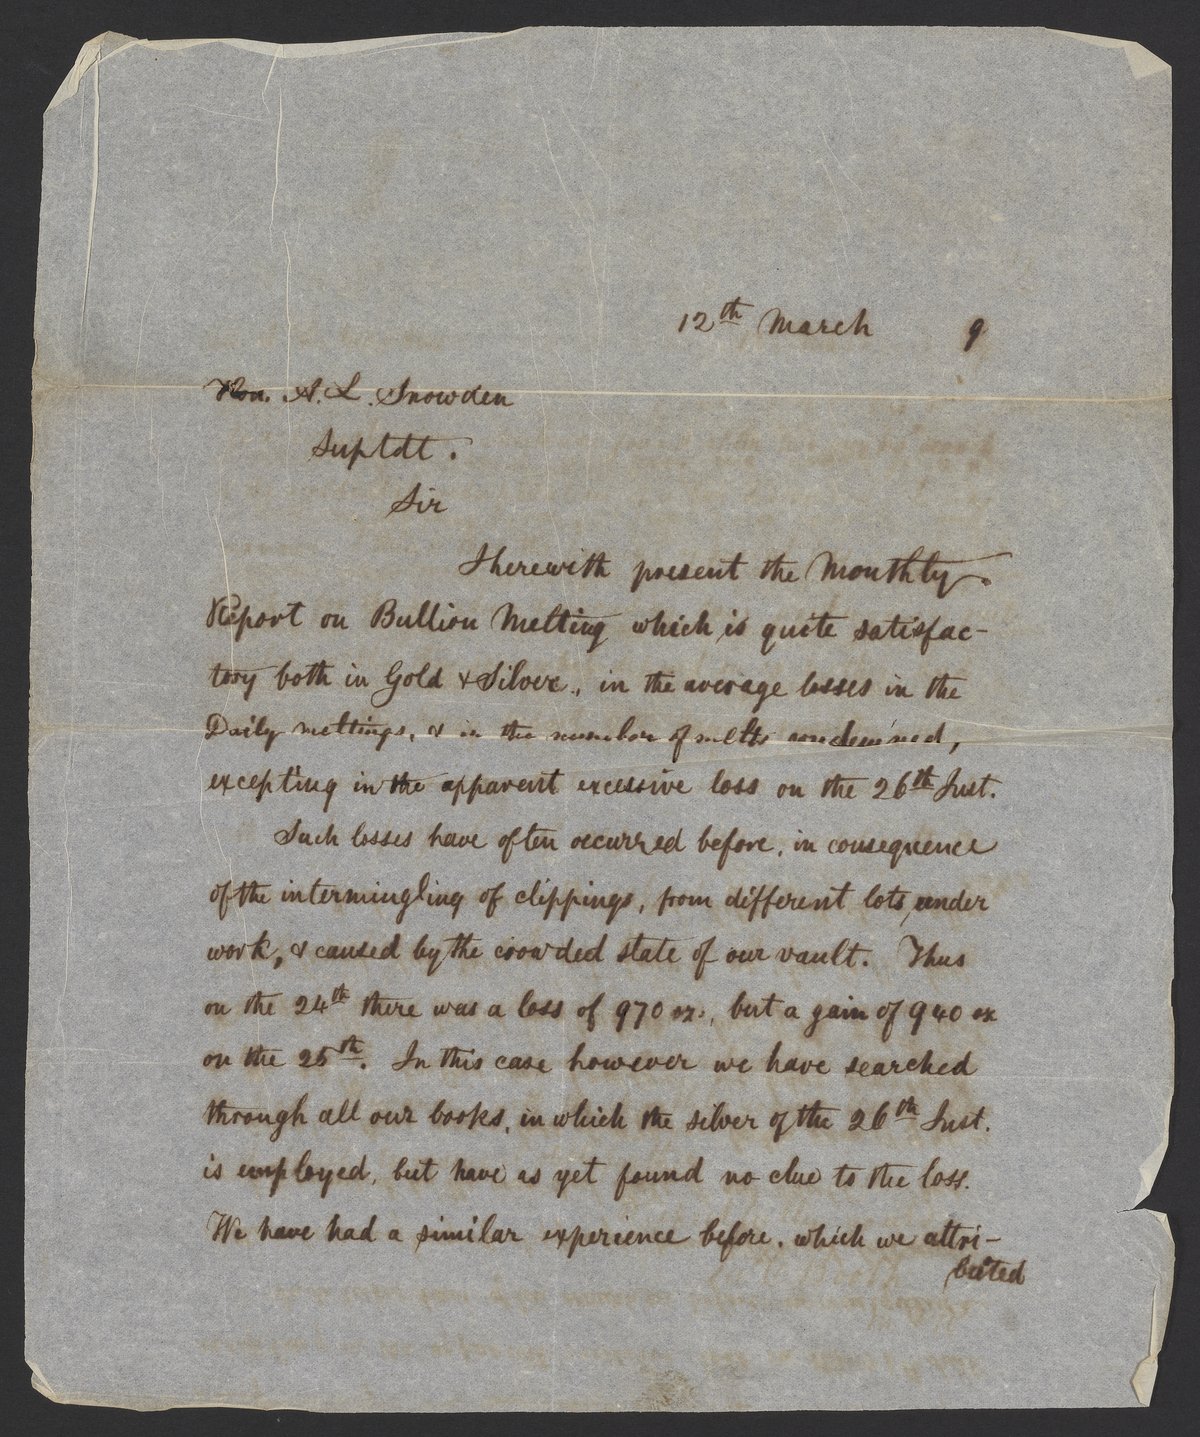 12th March 9
Hon. A. L. Snowden
Suptdt.
Sir
I herewith present the Monthly
Report on Bullion Melting which is quite satisfac-
tory both in Gold & Silver, in the average losses in the
Daily meltings, & in the number of melts condemned,
excepting in the apparent excessive loss on the 26th Inst.
Such losses have often occurred before, in consequence
of the intermingling of clippings, from different lots, under
work, & caused by the crowded state of our vault. Thus
on the 24th there was a loss of 970 oz., but a gain of 940 oz
on the 25th. In this case however we have searched
through all our books, in which the silver of the 26th Inst.
is employed, but have as yet found no clue to the loss.
We have had a similar experience before, which we attri-
buted